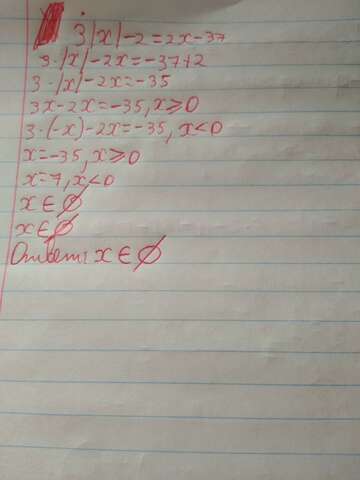 3|x|-2=2x-37
3·|x|-2x=-37+2
3·|x|-2x=-35
3x-2x=-35, x≥0
3·(-x)-2x=-35, x<0
x=-35, x≥0
x=7, x<0
x∈∅
x∈∅
Ответ: x∈∅